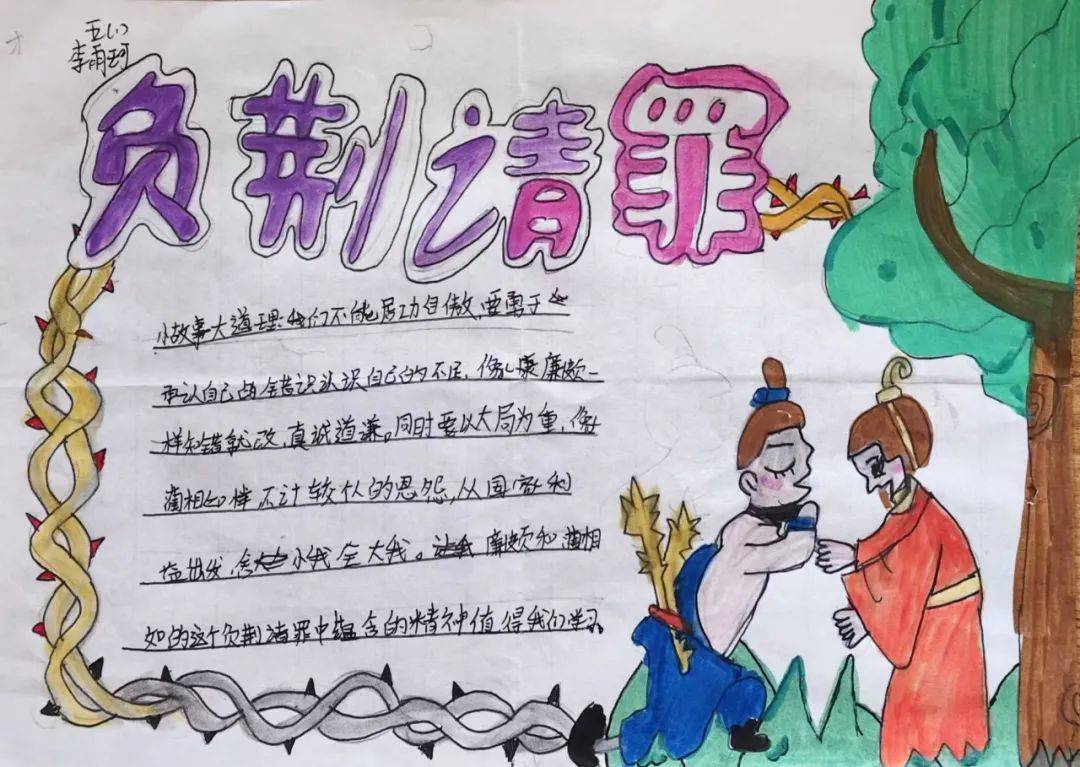 五(1)
李雨珂
负荆请罪
小故事大道理:我们不能居功自傲,要勇于
承认自己的错识认识自己的不足,像廉廉颇一
样知错就改,真诚道谦。同时要以大局为重,像
蔺相如样,不计较个人的恩怨,从国家利
益出发,舍小我全大我。廉颇和蔺相
如的这个负荆请罪中蕴含的精神值得我们学习